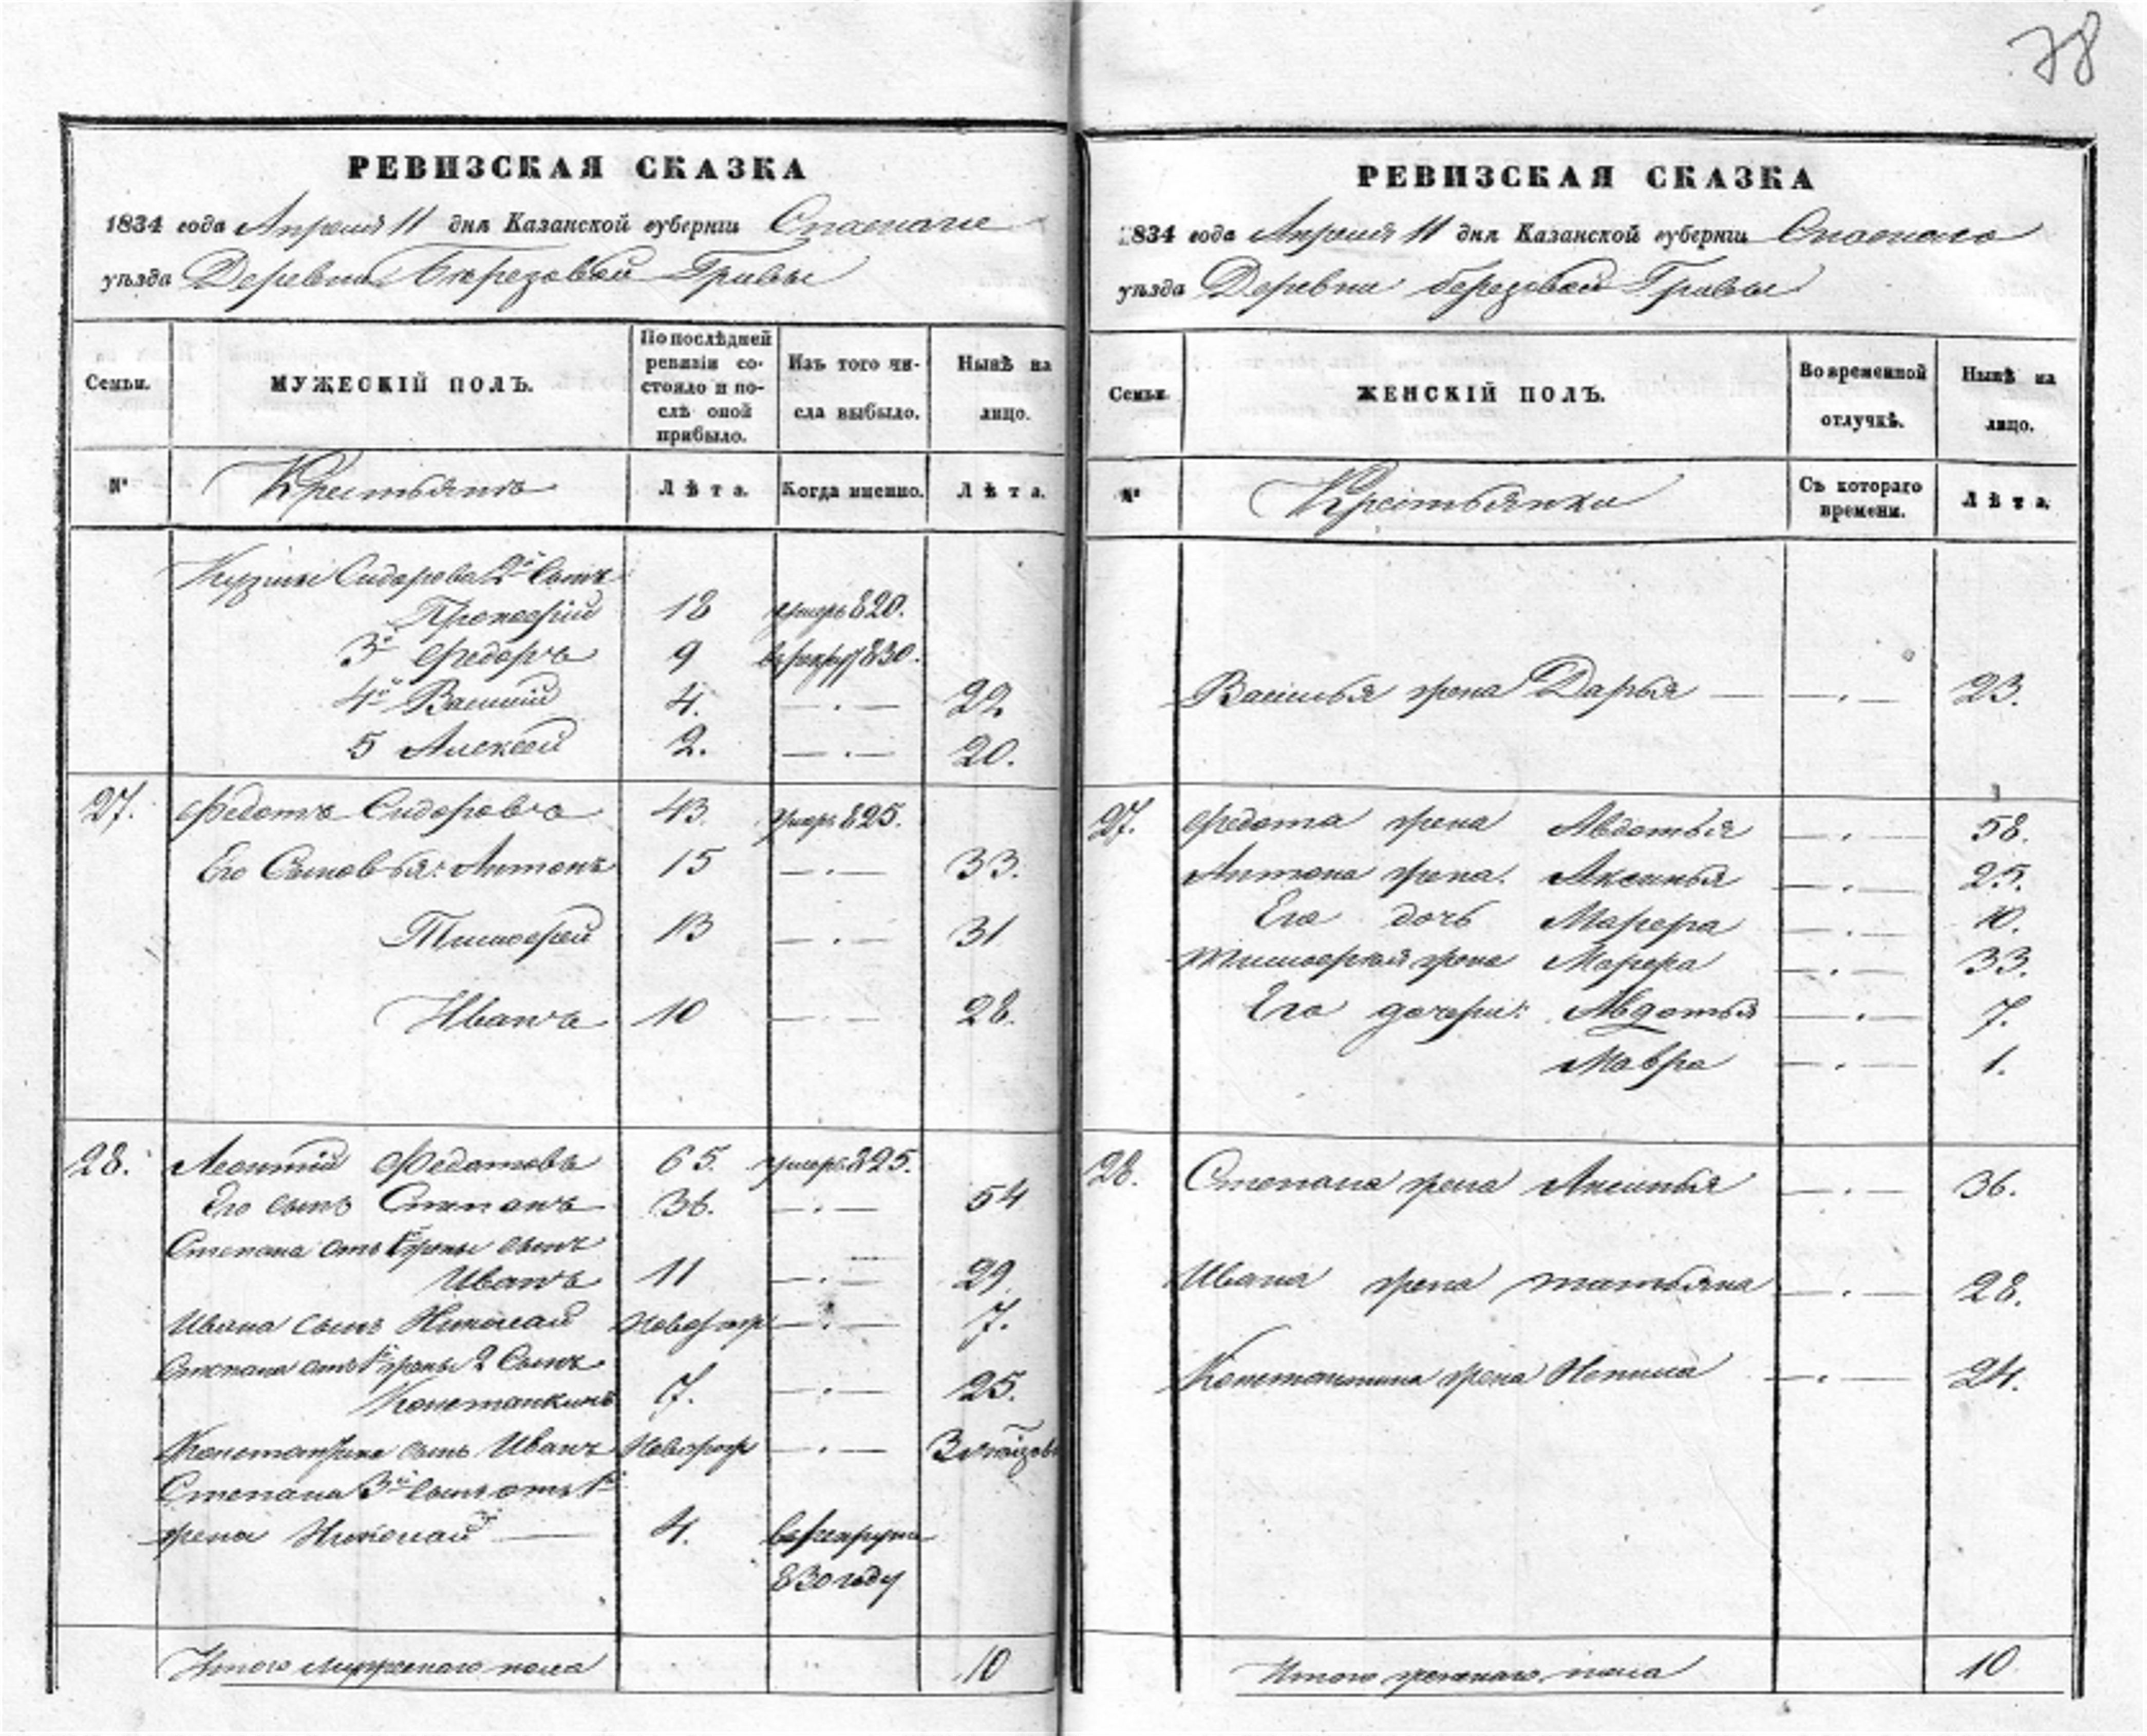 78
РЕВИЗСКАЯ СКАЗКА
1834 года Апреля 11 дня Казанской губернiи Спаскаго
уѣзда Деревни Березовой Гривы
Семьи.
МУЖЕСКIЙ ПОЛЪ.
По послѣдней ревизiи состояло и послѣ оной прибыло.
Изъ того числа выбыло.
Нынѣ на лицо.
№
Крестьянъ
Лѣта.
Когда именно.
Лѣта.
Сидорова 2й Сынъ
Прокофiй 18 умеръ 820.
3й Федоръ 9 830.
4й Василiй 4. 22
5 Алексей 2. 20.
27. Федотъ Сидоровъ 43. умеръ 825.
Его Сыновья: Антонъ 15 33.
Тимофей 13 31
Иванъ 10 28.
28. Леонтiй Федотовъ 65. умеръ 825.
Его сынъ Степанъ 36. 54
Степана отъ 1й жены сынъ
Иванъ 11 29.
Ивана сынъ Николай Новорож 7.
Степана отъ 1й жены 2 Сынъ
7. 25.
сынъ Иванъ Новорож
Степана 3й Сынъ отъ 1й
жены Николай 4. в рекруты
830 году
Итого мужескаго пола 10
РЕВИЗСКАЯ СКАЗКА
1834 года Апреля 11 дня Казанской губернiи Спаскаго
уѣзда Деревни березовой Гривы
Семьи.
ЖЕНСКIЙ ПОЛЪ.
Во временной отлучкѣ.
Нынѣ на лицо.
№
Крестьянки
Съ котораго времени.
Лѣта.
Василья жена Дарья 23.
27. Федота жена Авдотья 58.
Антона жена Аксинья 25.
Его дочь 10.
Тимофея жена 33.
Его дочери: Авдотья 7.
Мавра 1.
28. Степана жена Аксинья 36.
Ивана жена татьяна 28.
Константина жена 24.
Итого женскаго пола 10